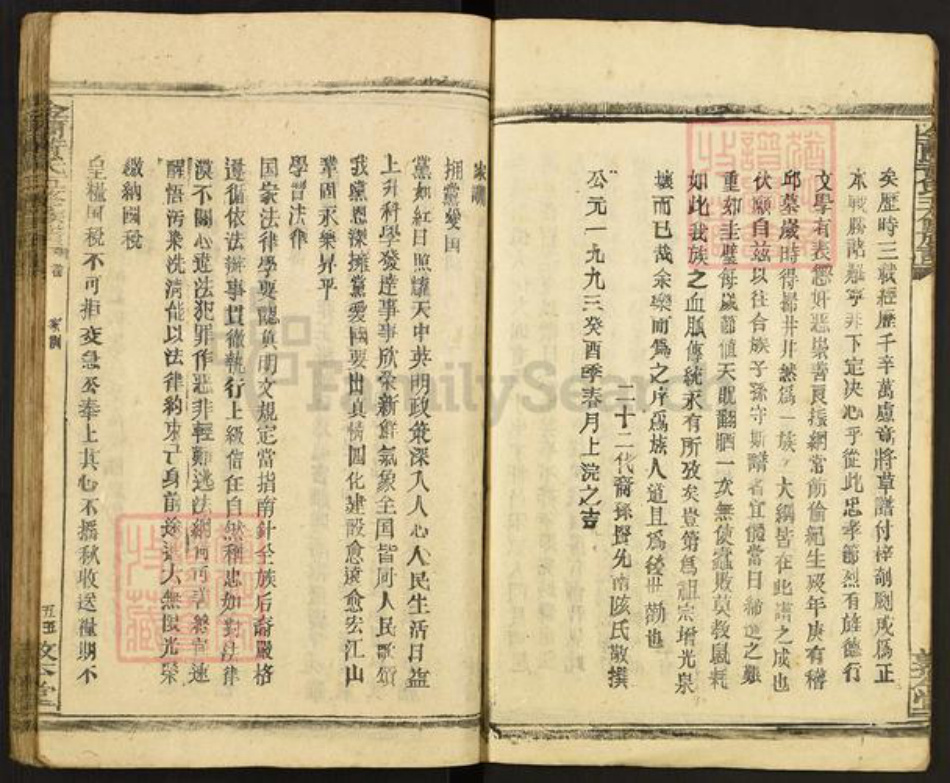 矣歷時三載經歷千辛萬慮竟將草譜付梓剞劂成爲正
本戰勝諸難寧非下定决心乎從此忠孝節烈有旌德行
文學有表懲奸惡崇善良振綱常飭倫紀生殁年庚有稽
邱墓歲時得掃井井然爲一族之大綱皆在此譜之成也
伏願自茲以往合族子孫守斯譜者宜體當日締造之艱
重如圭璧每歲節值天貺翻晒一次無使蠹敗莫教鼠耗
如此我族之血脈傳統永有所攷矣豈第爲祖宗增光泉
壤而已哉余樂而爲之序爲族人道且爲後世勸也
二十二代裔孫賢先南陔氏敬撰
公元一九九三癸酉季春月上浣之吉
家訓
拥黨愛国
黨如紅日照耀天中英明政策深入人心人民生活日益
上升科學發達事事欣榮新鮮氣象全国皆同人民歌頌
我黨恩深擁黨愛國要出真情四化建設愈遠愈宏江山
鞏固永樂昇平
學習法律
国家法律學要認真明文規定當指南針全族后裔嚴格
遵循依法辦事貫徹執行上級信任自然稱忠如對法律
漠不關心違法犯罪作惡非輕難逃法網
醒悟污染洗清能以法律約束己身前途遠大無限光榮
繳納國稅
皇糧国稅不可拒交急公奉上其心不播秋收送徵期不
家訓
五五